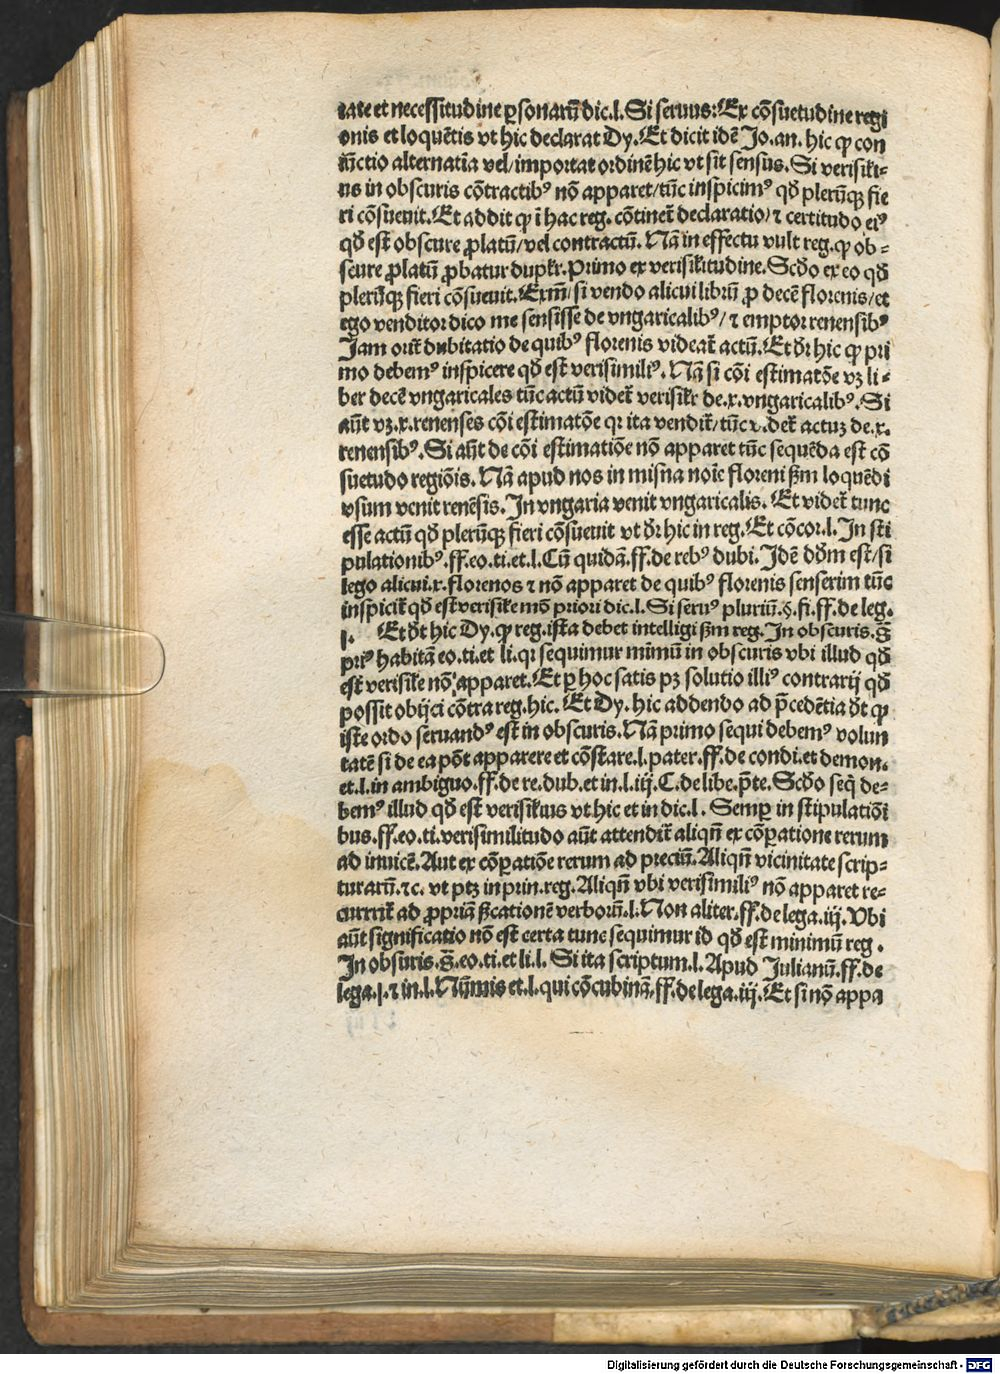 tate et necessitudine ꝑsonarū dic.l. Si seruus: Ex cōsuetudine regi
onis et loquētis vt hic declarat Dy. Et dicit idē Jo.an. hic ꝙ con
iūctio alternatīa vel/importat ordinē hic vt sit sensus. Si verisili-
us in obscuris cōtractibꝰ nō apparet/tūc inspicimꝰ qđ plerūqꝫ fie
ri cōsueuit. Et addit ꝙ ī hac reg. cōtinet̄ declaratio/⁊ certitudo eiꝰ
qđ est obscure ꝓlatū/vel contractū. Nā in effectu vult reg. ꝙ ob-
scure ꝓlatū ꝓbatur dupłr. Primo ex verisilitudine. Scđo ex eo qđ
plerūqꝫ fieri cōsueuit. Exm̄/si vendo alicui librū ꝓ decē florenis/et
ego venditor dico me sensisse de vngaricalibꝰ/⁊ emptor renensibꝰ
Jam orit̄ dubitatio de quibꝰ florenis videat̄ actū. Et dr̄ hic ꝙ pri
mo debemꝰ inspicere qđ est verisimiliꝰ. Nā si cōi estimatōe vꝫ li-
ber decē vngaricales tūc actū videt̄ verisilr de.x.vngaricalibꝰ. Si
aūt vꝫ.x.renenses cōi estimatōe qꝛ ita vendit̄/tūc v.det̄ actuꝫ de.x.
renensibꝰ. Si aūt de cōi estimatiōe nō apparet tūc sequēda est cō
suetudo regiōis. Nā apud nos in misna noīe floreni ẜm loquēdi
vsum venit renēsis. Jn vngaria venit vngaricalis. Et videt̄ tunc
esse actū qđ plerūqꝫ fieri cōsueuit vt dr̄ hic in reg. Et cōcor.l. Jn sti
pulationibꝰ.ff.eo.ti.et.l. Cū quidā.ff.de rebꝰ dubi. Jdē dđm est/si
lego alicui.x.florenos ⁊ nō apparet de quibꝰ florenis senserim tūc
inspicit̄ qđ est verisile mō priori dic.l. Si seruꝰ pluriū.§.fi.ff.de leg.
j. Et dt̄ hic Dy. ꝙ reg. ista debet intelligi ẜm reg. Jn obscuris. ḡ
priꝰ habitā eo.ti.et li. qꝛ sequimur mīmū in obscuris vbi illud qđ
est verisile nō apparet. Et ꝑ hoc satis pꝫ solutio illiꝰ contrarij qđ
possit obijci cōtra reg. hic. Et Dy. hic addendo ad p̄cedētia dt̄ ꝙ
iste ordo seruandꝰ est in obscuris. Nā primo sequi debemꝰ volun
tatē si de ea pōt apparere et cōstare.l. pater.ff.de condi.et demon.
et.l. in ambiguo.ff.de re.dub.et in.l.iij. C.de libe.p̄te. Scđo seq̄ de-
bemꝰ illud qđ est verisilius vt hic et in dic.l. Semꝑ in stipulatiōi
bus.ff.eo.ti. verisimilitudo aūt attendit̄ aliqn̄ ex cōꝑatione rerum
ad inuicē. Aut ex cōꝑatiōe rerum ad preciū. Aliqn̄ vicinitate scrip-
turarū.⁊c. vt ptꝫ in prin.reg. Aliqn̄ vbi verisimiliꝰ nō apparet re-
currit̄ ad ꝓpriā ſīficationē verborū.l. Non aliter.ff.de lega.iij. Vbi
aūt significatio nō est certa tunc sequimur id qđ est minimū reg.
Jn obsuris. ḡ. eo.ti.et li.l. Si ita scriptum.l. Apud Julianū.ff.de
lega.j.⁊ in.l. Nūmis et.l. qui cōcubinā.ff.de lega.iij. Et si nō appa
Digitalisierung gefördert durch die Deutsche Forschungsgemeinschaft - DFG